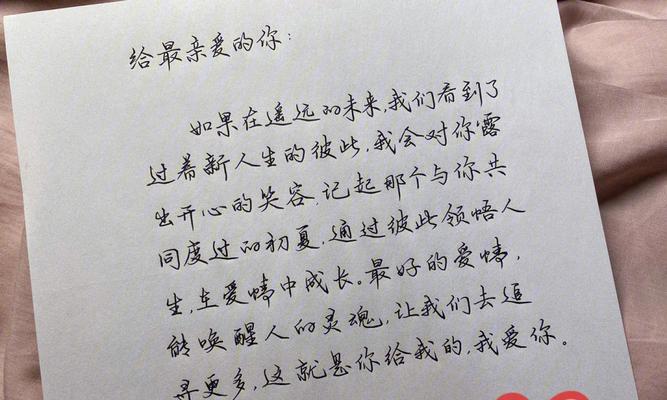 给最亲爱的你:
如果在遥远的未来,我们看到了
过着新人生的彼此,我会对你露
出开心的笑容,记起那个与你共
同度过的初夏,通过彼此领悟人
生,在爱情中成长。最好的爱情,
能唤醒人的灵魂,让我们去追
寻更多,这就是你给我的,我爱你。